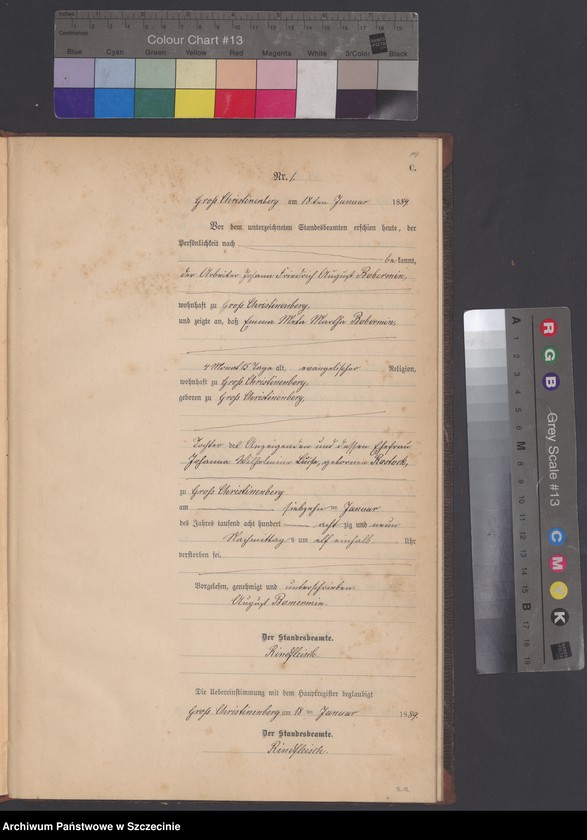 Colour Chart #13
Blue Cyan Green Yellow Red Magenta White 3/Color Black
C.
Nr. 1.
Groß Christinenberg am 18ten Januar 1889
Vor dem unterzeichneten Standesbeamten erschien heute, der
Persönlichkeit nach
be kannt,
der Arbeiter Johann Friedrich August Bobermin,
wohnhaft zu Groß Christinenberg,
und zeigte an, daß Emma Meta Martha Bobermin,
4 Monat 15 Tage alt, evangelischer Religion,
wohnhaft zu Groß Christinenberg,
geboren zu Groß Christinenberg,
Tochter des Anzeigenden und dessen Ehefrau
Johanna Wilhelmine Luise, geborenen Rostock,
zu Groß Christinenberg
am siebzehnten Januar
des Jahres tausend acht hundert acht zig und neun
Nachmittags um elf einhalb Uhr
verstorben sei.
Vorgelesen, genehmigt und unterschrieben
August Bomermin
Der Standesbeamte.
Rindfleisch
Die Uebereinstimmung mit dem Hauptregister beglaubigt
Groß Christinenberg am 18ten Januar 1889.
Der Standesbeamte.
Rindfleisch.
Grey Scale #13
A
M
B
R
G
B
C
M
Y
K
Archiwum Państwowe w Szczecinie